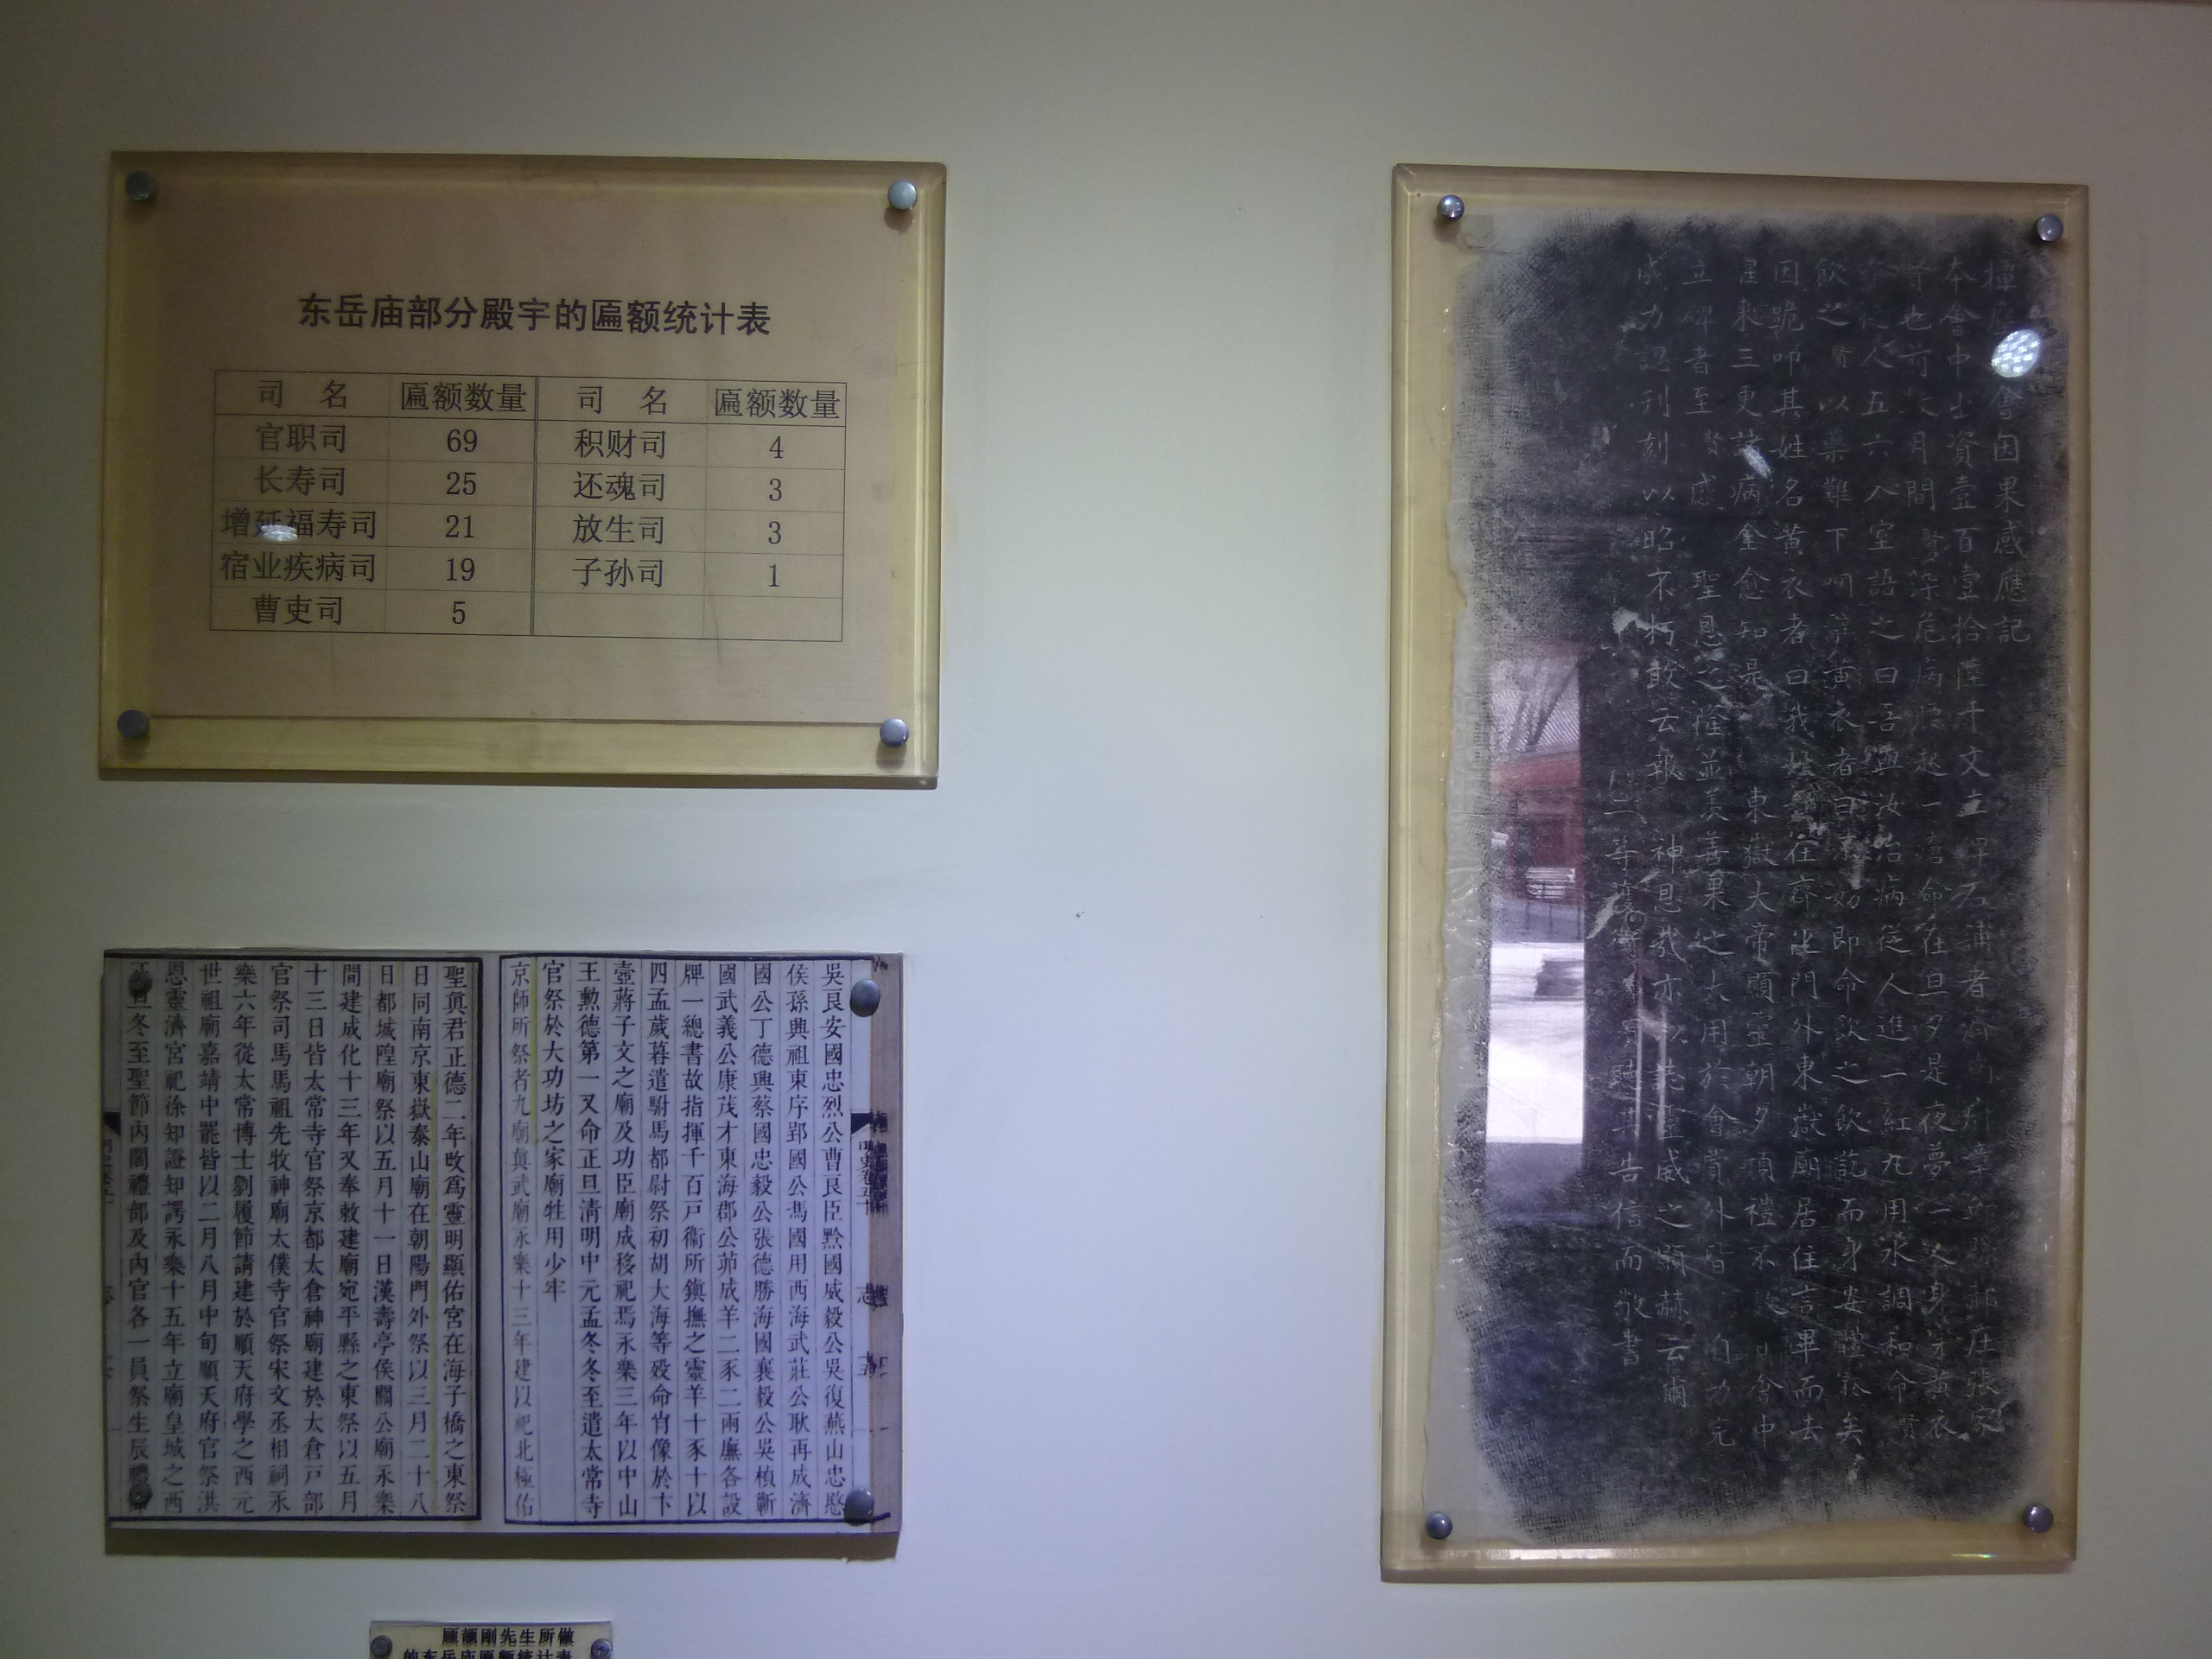 东岳庙部分殿宇的匾额统计表
司 名 匾额数量 司 名 匾额数量
官职司 69 积财司 4
长寿司 25 还魂司 3
增延福寿司 21 放生司 3
宿业疾病司 19 子孙司 1
曹吏司 5
吳良安國忠烈公曹良臣黔國威毅公吳復燕山忠愍
侯孫興祖東序郢國公馮國用西海武莊公耿再成濟
國公丁德興蔡國忠毅公張德勝海國襄毅公吳楨蘄
國武義公康茂才東海郡公茆成羊二豕二兩廡各設
牌一總書故指揮千百戸衞所鎮撫之靈羊十豕十以
四孟歲暮遣駙馬都尉祭初胡大海等歿命肖像於卞
壺蔣子文之廟及功臣廟成移祀焉永樂三年以中山
王勲德第一又命正旦清明中元孟冬冬至遣太常寺
官祭於大功坊之家廟牲用少牢
京師所祭者九廟真武廟永樂十三年建以祀北極佑
聖眞君正德二年改爲靈明顯佑宮在海子橋之東祭
日同南京東嶽泰山廟在朝陽門外祭以三月二十八
日都城隍廟祭以五月十一日漢壽亭侯關公廟永樂
間建成化十三年又奉敕建廟宛平縣之東祭以五月
十三日皆太常寺官祭京都太倉神廟建於太倉戸部
官祭司馬馬祖先牧神廟太僕寺官祭宋文丞相祠永
樂六年從太常博士劉履節請建於順天府學之西元
世祖廟嘉靖中罷皆以二月八月中旬順天府官祭洪
恩靈濟宮祀徐知證知諤永樂十五年立廟皇城之西
旦冬至聖節內閣禮部及內官各一員祭生辰
顾颉刚先生所做
的东岳庙匾额统计表
會因果感應記
本會中出資壹百壹拾陸千文立碑石 者濟 府章 郝庄張家
也前 月間賢染危病 起一瘡命在旦夕是夜夢一人身穿黃衣
從人五六入室語之曰吾與汝治病從人進一紅丸用水調和命賢
飲之賢以藥難下咽 黃衣者曰 妙即命飲之飲訖而身安體 矣
因跪叩其姓名黃衣者曰我 住齊化門外東嶽廟居住言畢而去
三更 病全愈知是 東嶽大帝顯靈朝夕頂禮不 會中
立碑者至賢感 聖恩之隆並美善果 用於會 外皆 自
成力記刊刻以昭不朽敢云報 神恩哉亦以 靈威之顯赫云爾
等 告信而敬書